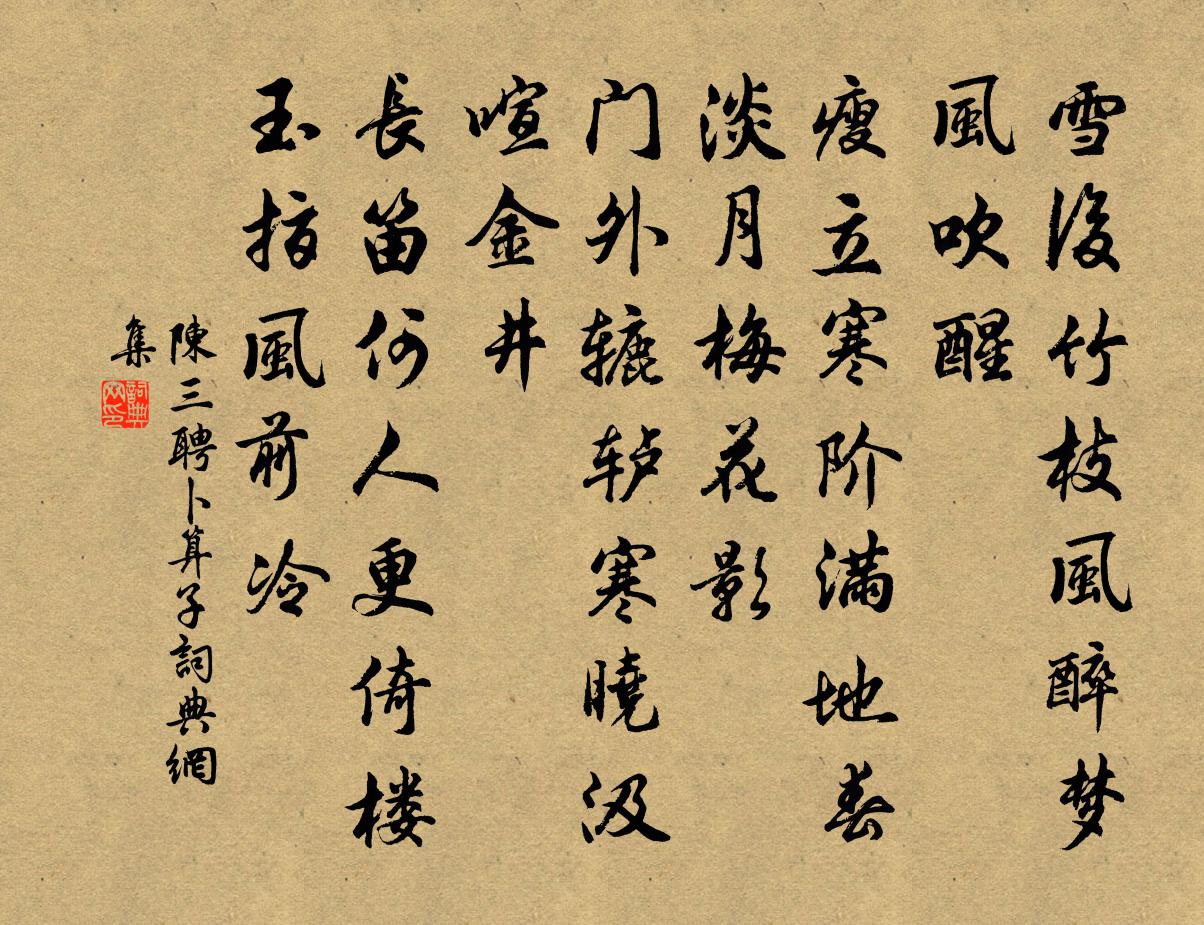 雪後竹枝風醉梦
風吹醒
瘦立寒阶满地春
淡月梅花影
门外辘轳寒曉汲
喧金井
長笛何人更倚楼
玉指風前冷
陳三聘卜算子詞典網
集
詞典网印